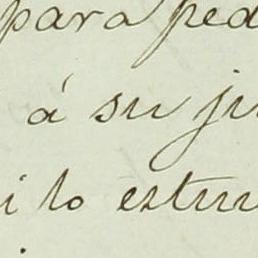 para ped
á su ju
i lo estu